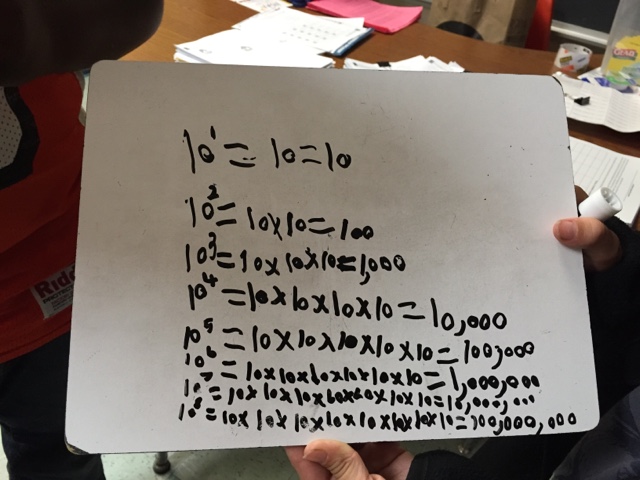 10¹= 10=10
10²=10x10=100
10³=10x10x10=1,000
10⁴=10x10x10x10=10,000
10⁵=10x10x10x10x10=100,000
10⁶=10x10x10x10x10x10=1,000,000
10⁷=10x10x10x10x10x10x10=10,000,000
10⁸=10x10x10x10x10x10x10x10=100,000,000
Ridd